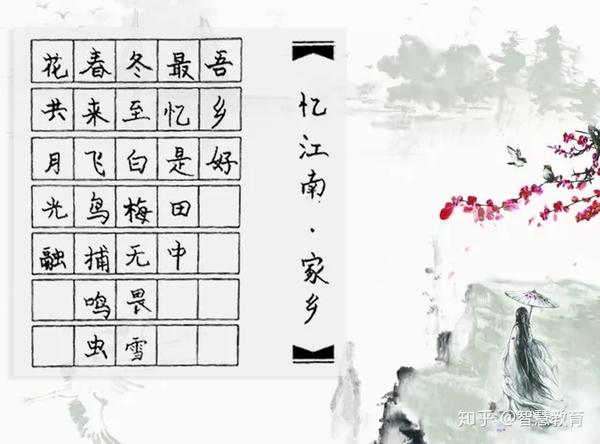 忆江南·家乡
吾乡好
最忆是田中
冬至白梅无畏雪
春来飞鸟捕鸣虫
花共月光融
知乎 @智慧教育